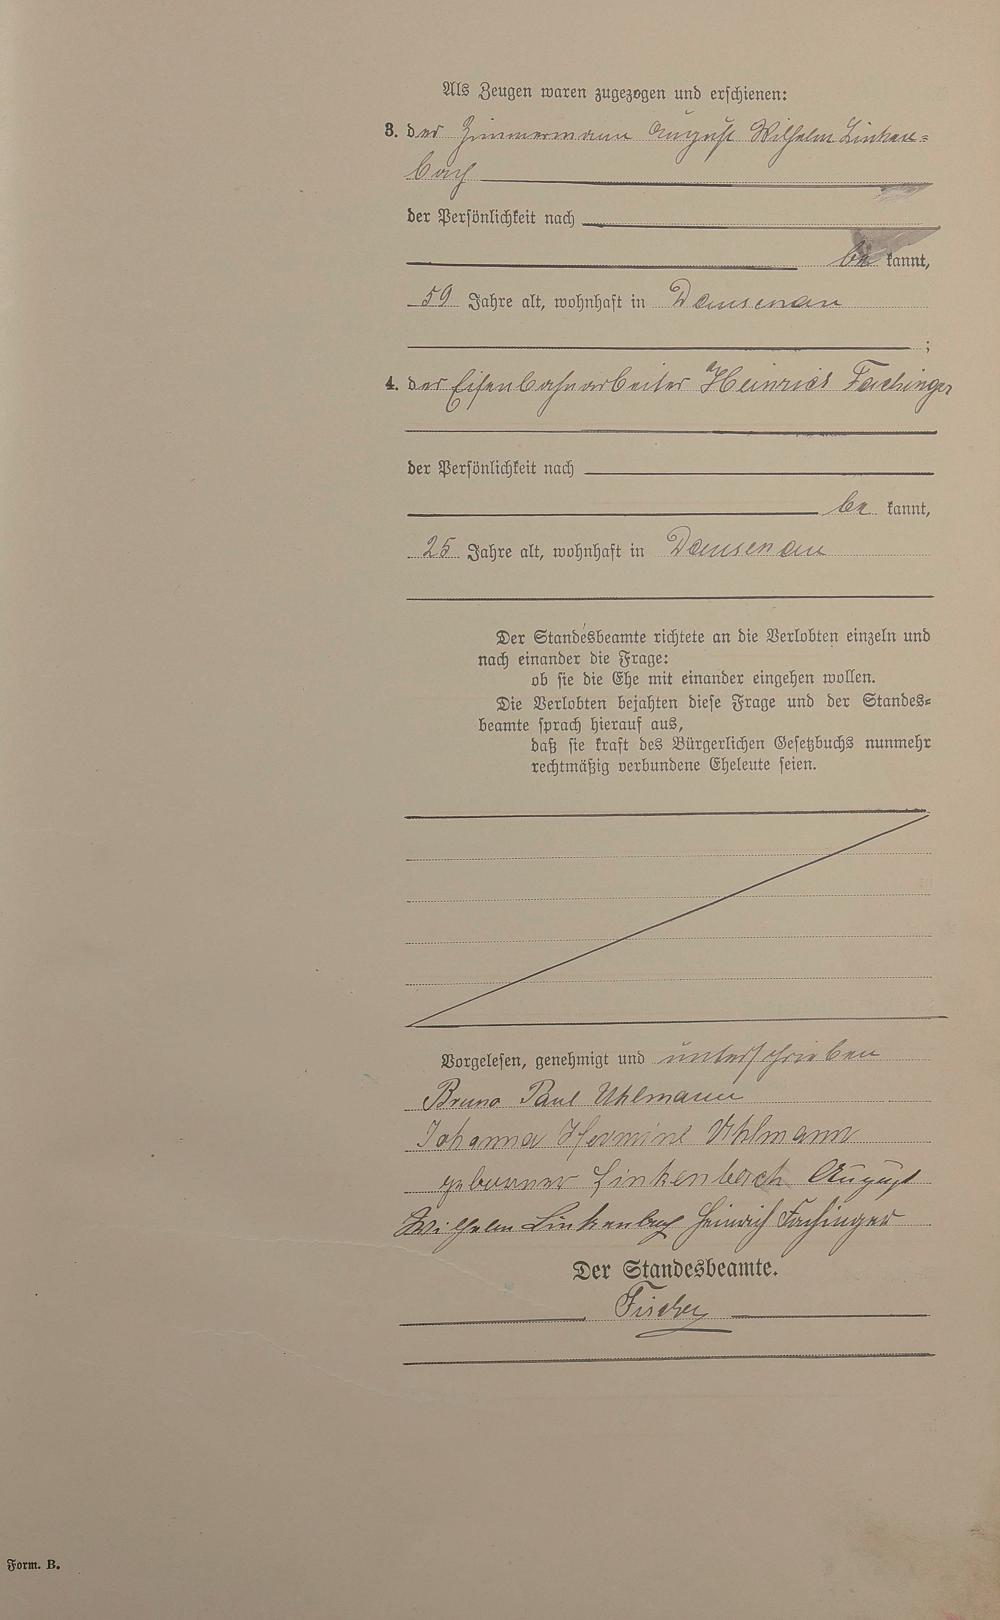 Als Zeugen waren zugezogen und erschienen:
3. der Zimmermann August Wilhelm Linken-
bach
der Persönlichkeit nach
be kannt,
59 Jahre alt, wohnhaft in Dausenau
;
4. der Eisenbahnarbeiter Heinrich Fachinger
der Persönlichkeit nach
be kannt,
25 Jahre alt, wohnhaft in Dausenau
Der Standesbeamte richtete an die Verlobten einzeln und
nach einander die Frage:
ob sie die Ehe mit einander eingehen wollen.
Die Verlobten bejahten diese Frage und der Standes-
beamte sprach hierauf aus,
daß sie kraft des Bürgerlichen Gesetzbuchs nunmehr
rechtmäßig verbundene Eheleute seien.
Vorgelesen, genehmigt und unterschrieben
Bruno Paul Uhlmann
Johanna Hermine Uhlmann
geborner Linkenbach August
Wilhelm Linkenbach Heinrich Fachinger
Der Standesbeamte.
Fischer
Form. B.